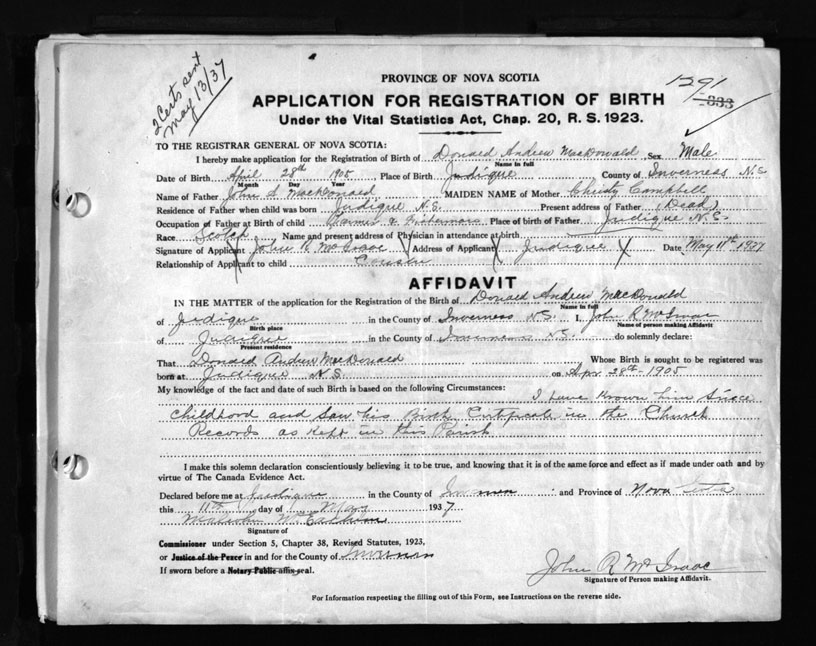 2 Certs sent
May 13/37
1291
333
PROVINCE OF NOVA SCOTIA
APPLICATION FOR REGISTRATION OF BIRTH
Under the Vital Statistics Act, Chap. 20, R. S. 1923.
TO THE REGISTRAR GENERAL OF NOVA SCOTIA:
I hereby make application for the Registration of Birth of Donald Andrew MacDonald Sex Male
Name in full
Date of Birth April 28th 1905 Place of Birth Judique County of Inverness N.S.
Month Day Year
Name of Father John A MacDonald MAIDEN NAME of Mother Christy Campbell
Residence of Father when child was born Judique N.S. Present address of Father (Dead)
Occupation of Father at Birth of child Farmer & Fisherman Place of birth of Father Judique N.S.
Race Scotch Name and present address of Physician in attendance at birth
Signature of Applicant John R McIsaac Address of Applicant Judique Date May 11th 1937
Relationship of Applicant to child Cousin
AFFIDAVIT
IN THE MATTER of the application for the Registration of the Birth of Donald Andrew MacDonald
Name in full
of Judique in the County of Inverness N.S. I, John R McIsaac
Birth place Name of person making Affidavit
of Judique in the County of Inverness N.S. do solemnly declare:
Present residence
That Donald Andrew MacDonald Whose Birth is sought to be registered was
born at Judique N.S. on Apr 28th 1905
My knowledge of the fact and date of such Birth is based on the following Circumstances:
I have known him since
Childhood and Saw his Birth Certificate in the Church
Records as Kept in this Parish
I make this solemn declaration conscientiously believing it to be true, and knowing that it is of the same force and effect as if made under oath and by
virtue of The Canada Evidence Act.
Declared before me at Judique in the County of Inverness and Province of Nova Scotia
this 11th day of May 1937
Signature of
Commissioner under Section 5, Chapter 38, Revised Statutes, 1923,
or Justice of the Peace in and for the County of Inverness
If sworn before a Notary Public affix seal.
John R McIsaac
Signature of Person making Affidavit.
For Information respecting the filling out of this Form, see Instructions on the reverse side.